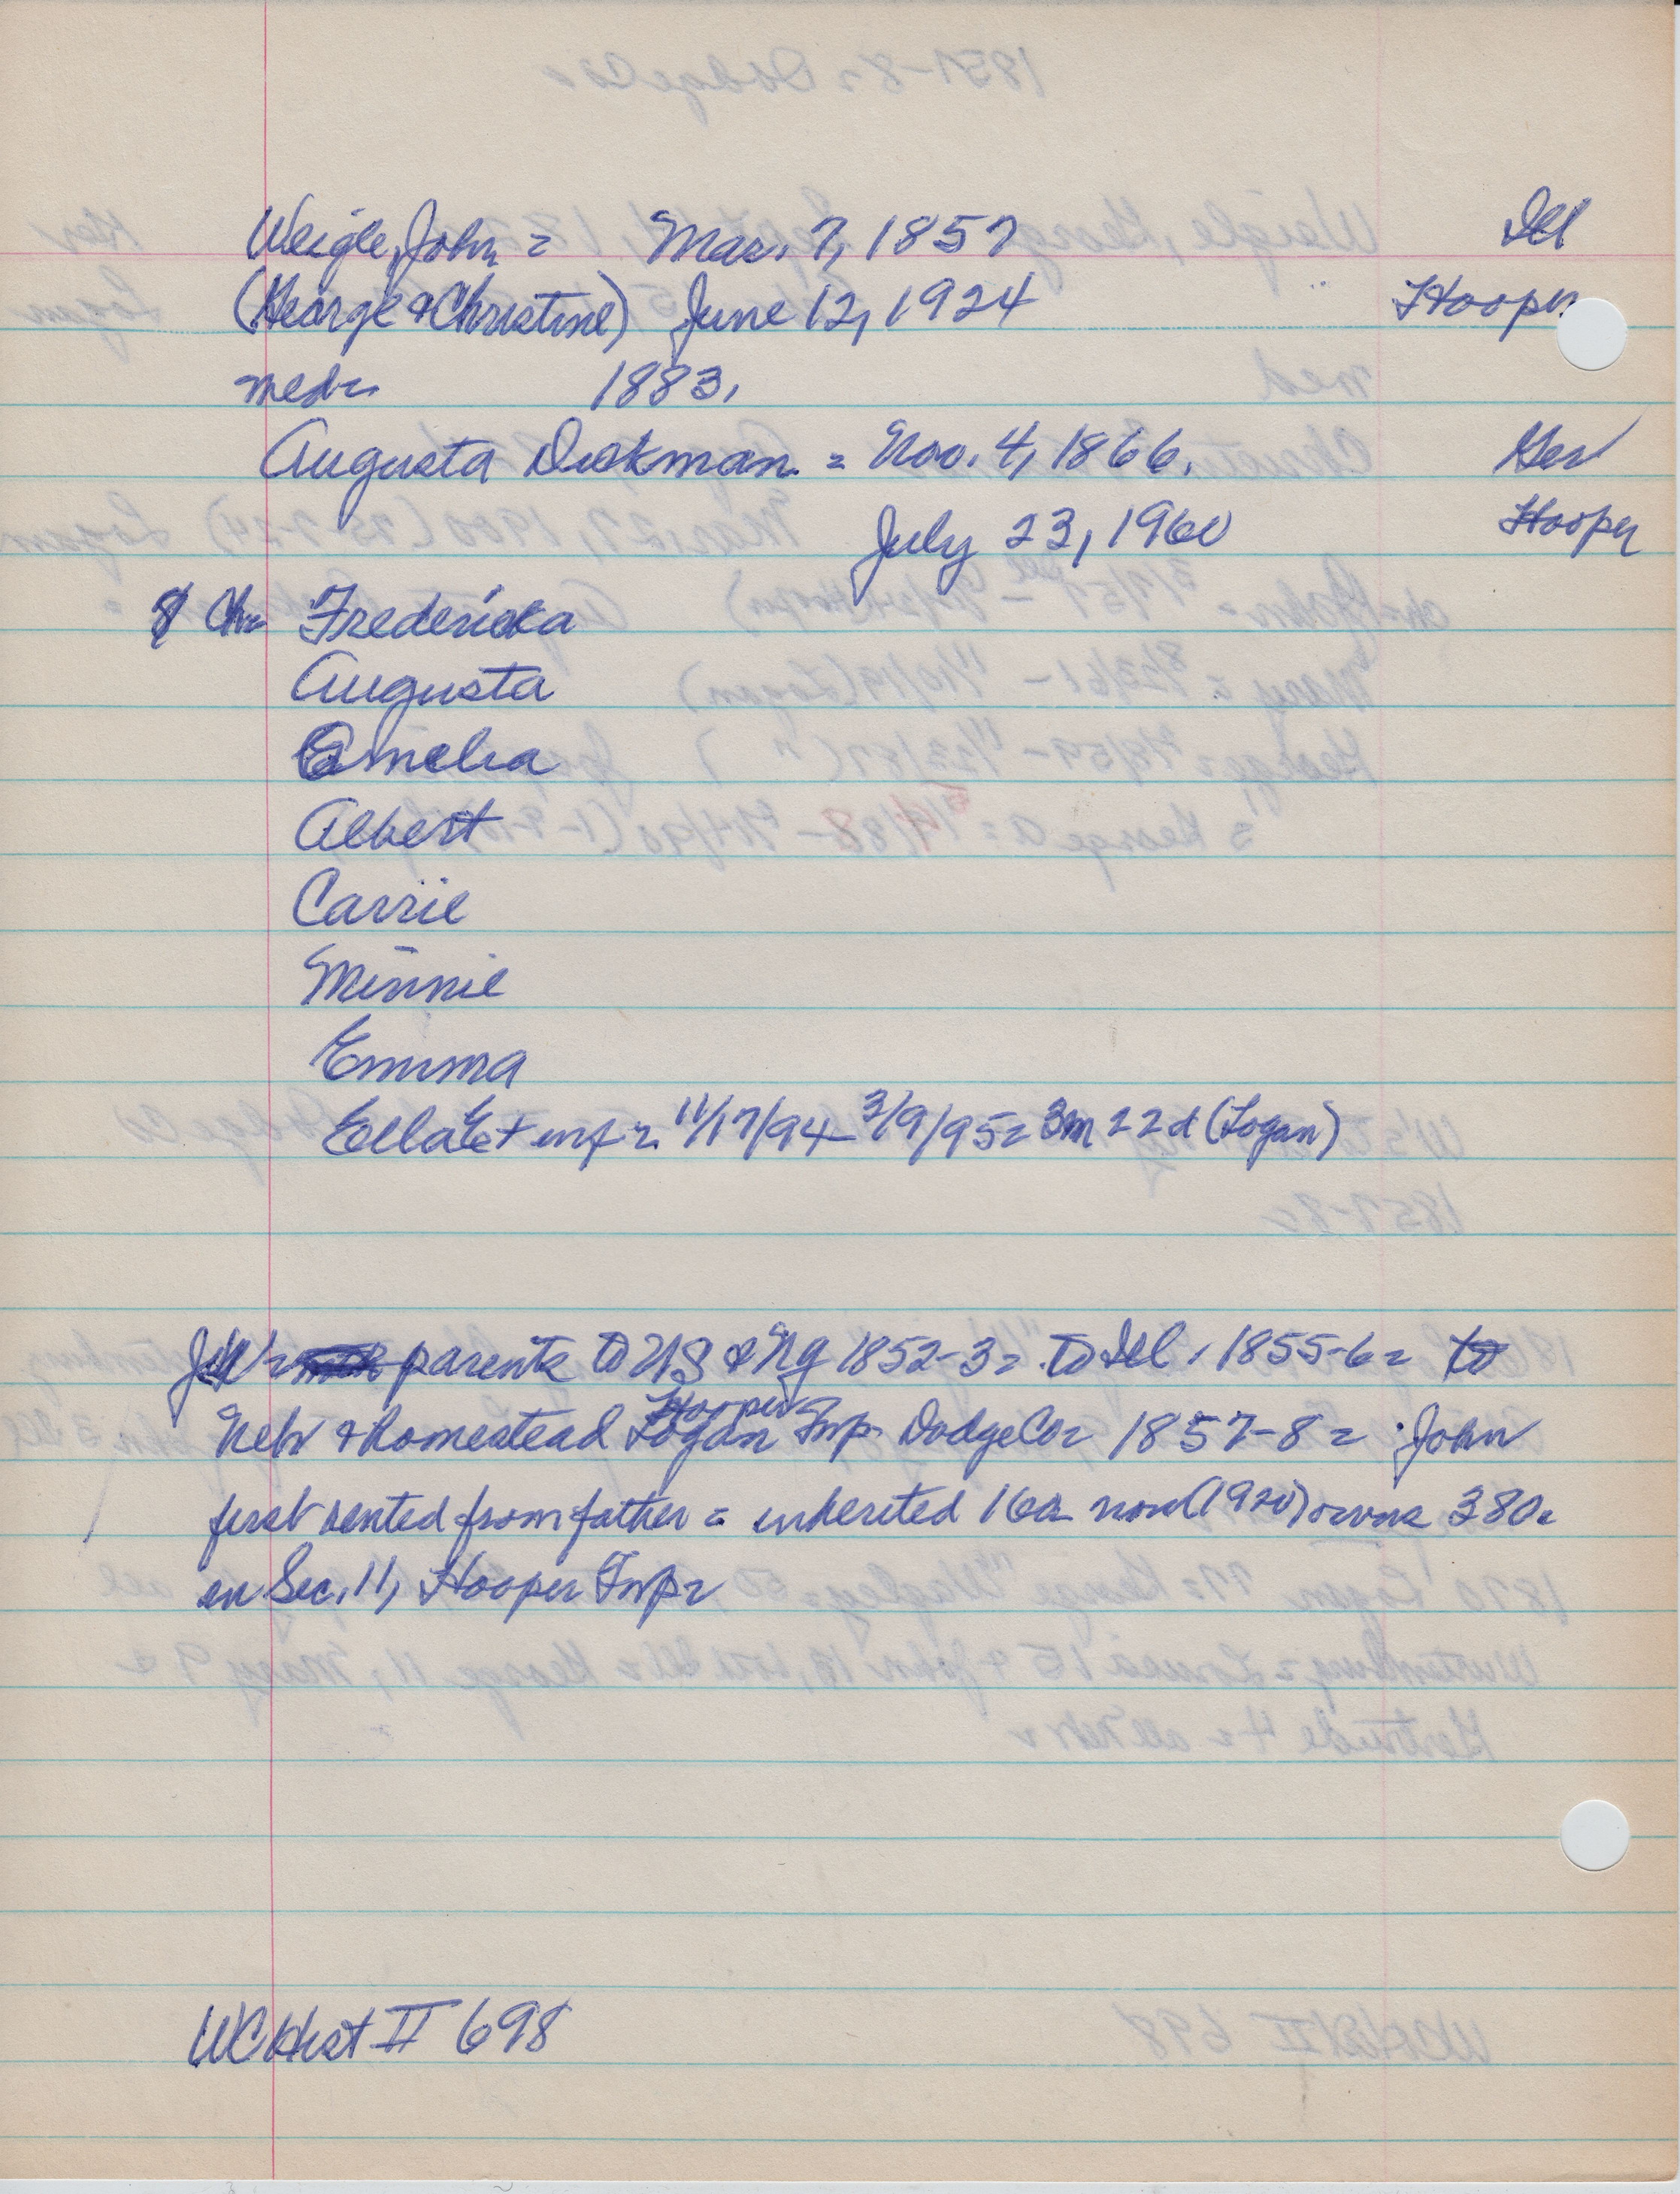 Weigle, John = Mar. 7, 1857 Ill
(George & Christine) June 12, 1924 Hooper
md = 1883,
Augusta Diekman = Nov. 4, 1866. Ger
July 23, 1960 Hooper
8 Ch = Fredericka
Augusta
Amelia
Albert
Carrie
Minnie
Emma
Ella E + inf = 11/17/94 - 3/9/95 = 3m 22d (Logan)
JW = parents to US & NY 1852-3 = to Ill . 1855-6 = to
Neb & homestead Logan Twp. Dodge Co = 1857-8 = John
Hooper
first rented from father = inherited 16a now (1920) owns 380.
in Sec. 11, Hooper Twp =
WC Hist II 698